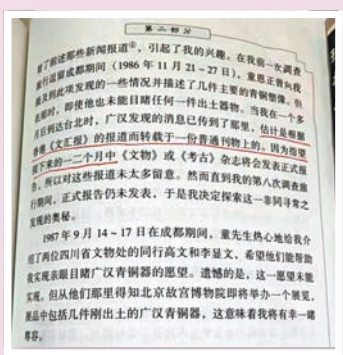 第二部分
了前述那些新闻报道④，引起了我的兴趣。在我前一次调查
旅行逗留成都期间（1986 年 11 月 21～27 日），童恩正曾向我
提及到此项发现的一些情况并描述了几件主要的青铜塑像。但
在那时，即使他也未能目睹任何一件出土器物。当我在一个多
月后到达台北时，广汉发现的消息已传到了那里，估计是根据
香港《文汇报》的报道而转载于一份普通刊物上的。因为指望
接下来的一二个月中《文物》或《考古》杂志将会发表正式报
告，所以对这些报道未太多留意。然而直到我的第八次调查旅
行期间，正式报告仍未发表，于是我决定探索这一非同寻常之
发现的奥秘。
1987 年 9 月 14～17 日在成都期间，童先生热心地给我介
绍了两位四川省文物处的同行高文和李显文，希望他们能帮助
我实现亲眼目睹广汉青铜器的愿望。遗憾的是，这一愿望未能
实现。但从他们那里得知北京故宫博物院即将举办一个展览，
展品中包括几件刚出土的广汉青铜器，这意味着我将有幸一睹
尊容。